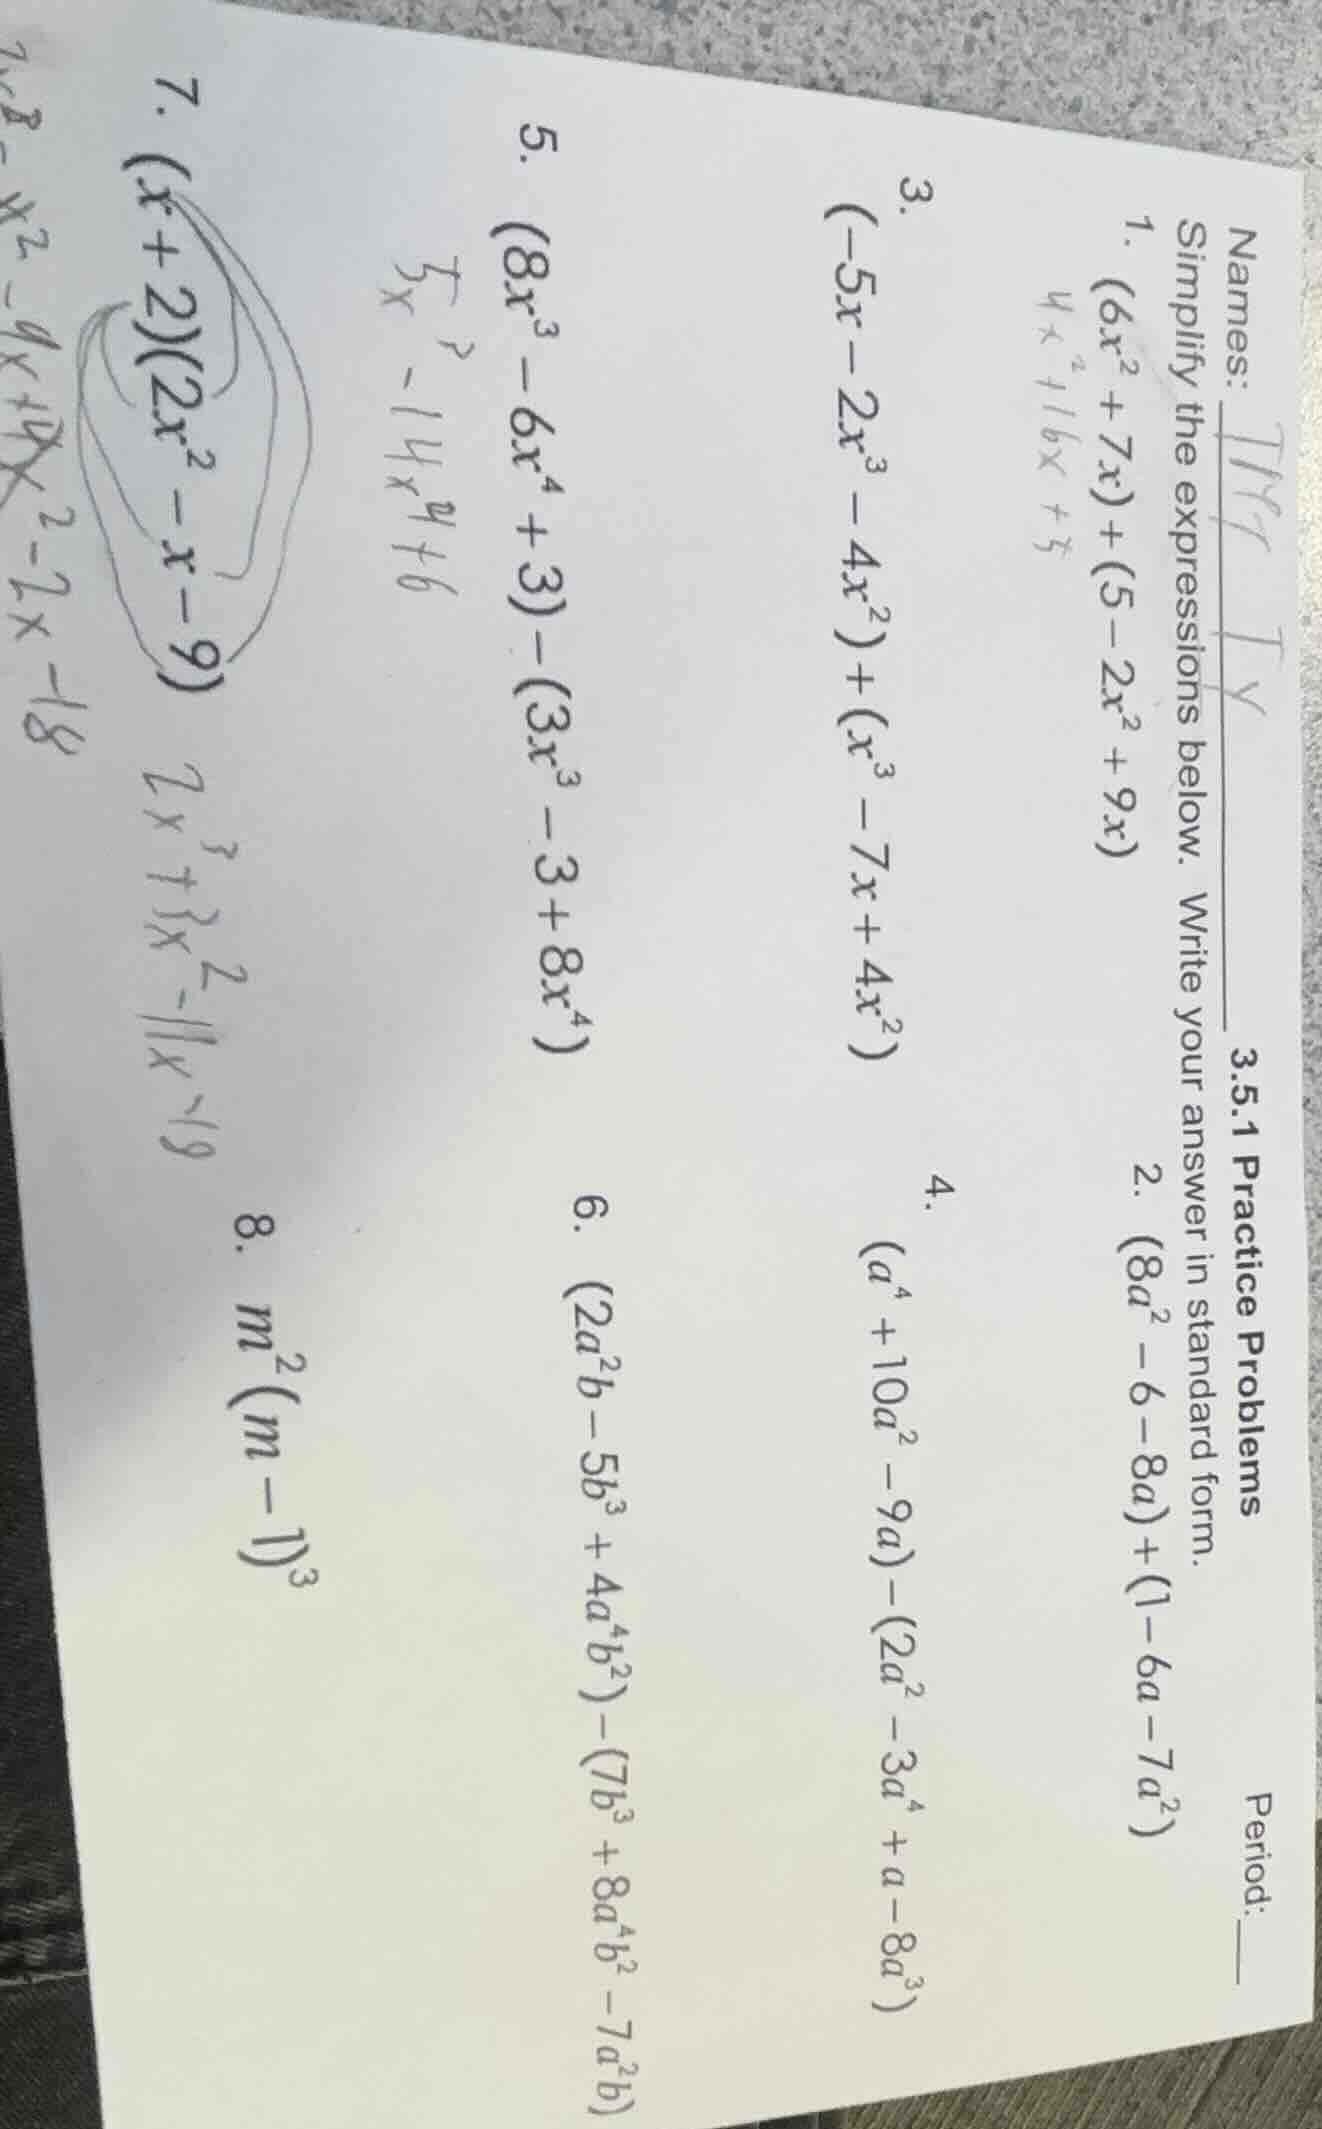 Names: Period:
3.5.1 Practice Problems
Simplify the expressions below. Write your answer in standard form.
1. (6x² + 7x) + (5 – 2x² + 9x)
4x² + 16x + 5
2. (8a² – 6 – 8a) + (1 – 6a – 7a²)
3. (–5x – 2x³ – 4x²) + (x³ – 7x + 4x²)
4. (a⁴ + 10a² – 9a) – (2a² – 3a⁴ + a – 8a³)
5. (8x³ – 6x⁴ + 3) – (3x³ – 3 + 8x⁴)
5x³ - 14x⁴ + 6
6. (2a²b – 5b³ + 4a⁴b²) – (7b³ + 8a⁴b² – 7a²b)
7. (x + 2)(2x² – x – 9)
2x³ + 3x² - 11x - 18
- x² - 9x + 4x² - 2x - 18
8. m²(m – 1)³